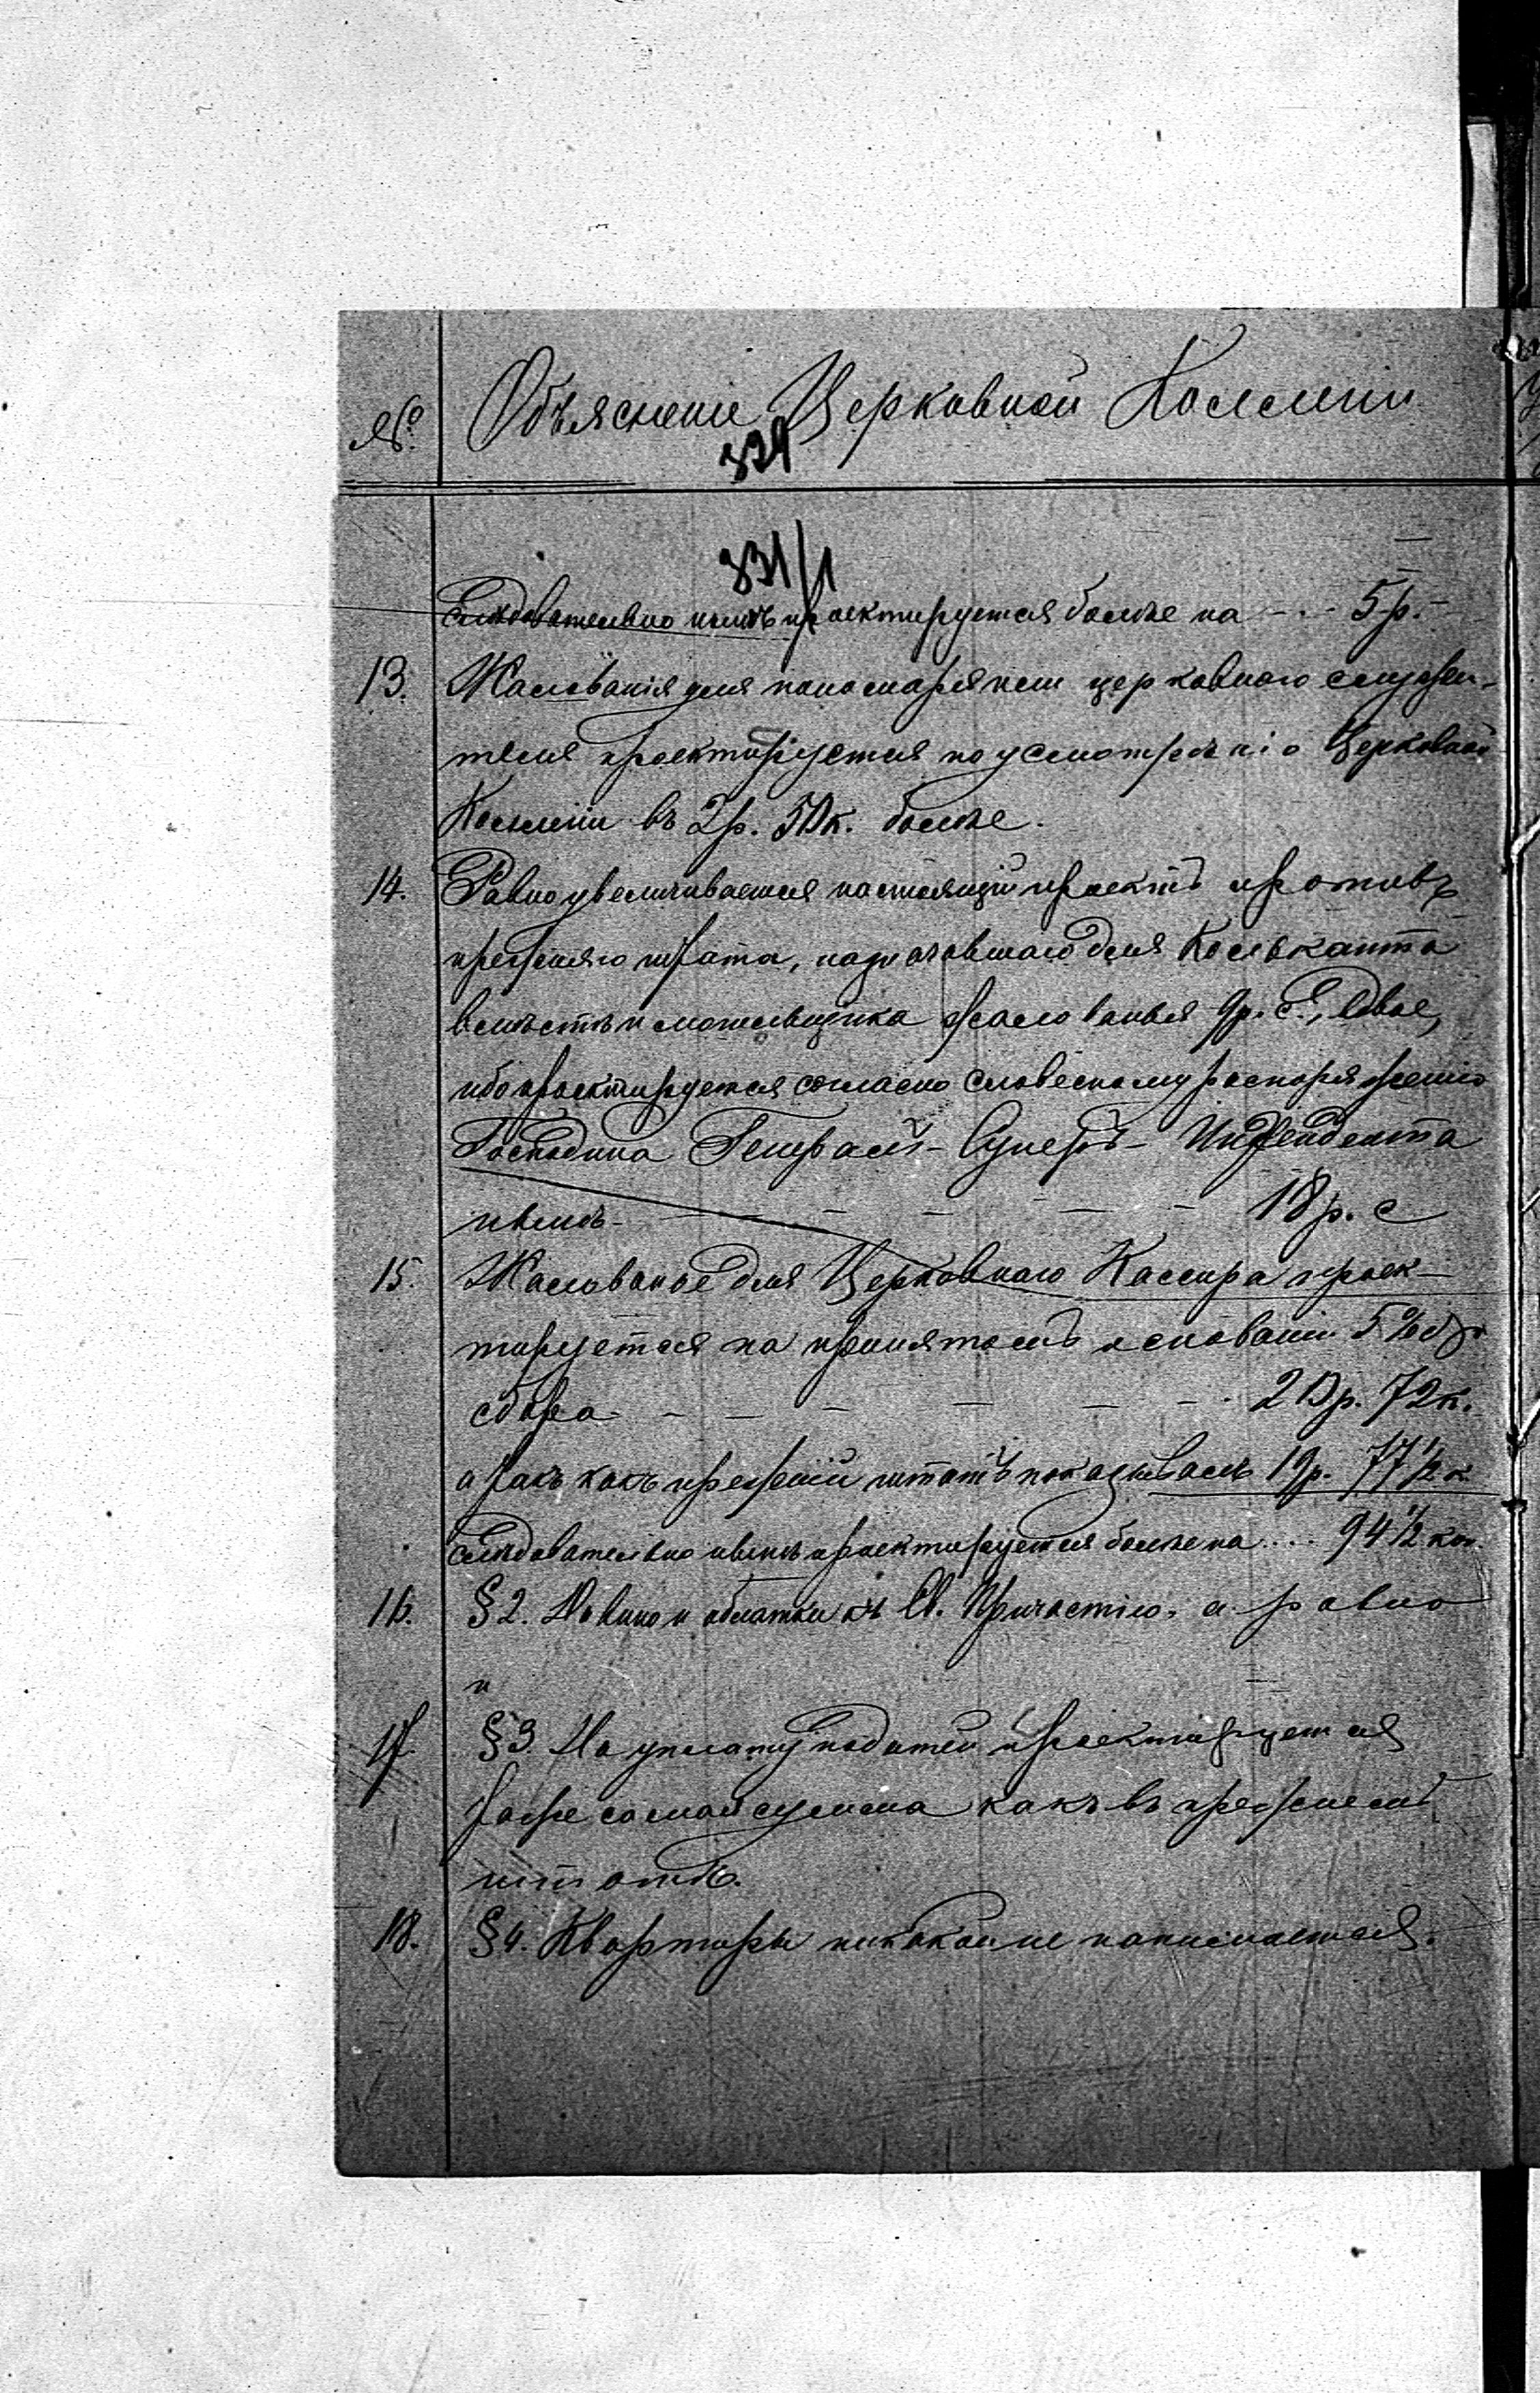 №. Объясненіе Церковной Коллегіи
334
331/1
Слѣдовательно нынѣ проектируется болѣе на - - - 5 р. -
13. Жалованія для пономаря или церковнаго служи-
теля проектируется по усмотрѣнію Церковной
Коллегіи въ 2 р. 50 к. болѣе.
14. Равно увеличивается настоящій проектъ противъ
прежняго штата, назначавшаго для Кальканта
вмѣстѣ и могильщика жалованья 9 р. с., вдвое,
ибо проектируется согласно словесному распоряженію
Господина Генералъ-Суперъ-Интендента
нынѣ - - - - - - 18 р. с
15. Жалованье для Церковнаго Кассира проек-
тируется на принятомъ основаніи 5% съ
сбора - - - - - - 20 р. 72 к.
а такъ какъ прежній штатъ показывалъ 19 р. 77 1/2 к
Слѣдовательно нынѣ проектируется болѣе на .... 94 1/2 коп.
16. § 2. На вино и облатки къ Св. Причастію, а равно
и
17. § 3. На уплату податей проектируется
таже самая сумма какъ въ прежнемъ
штатѣ.
18. § 4. Квартиры никакой не нанимается.